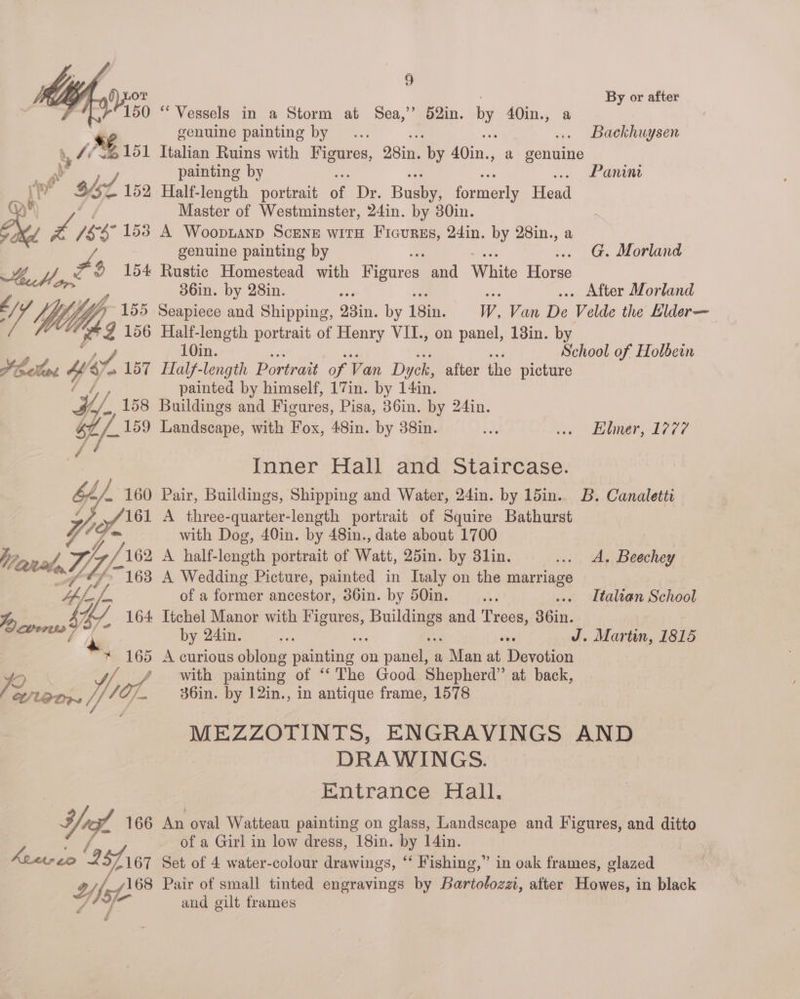 9
By or after
150 “Vessels in a Storm at Sea,” 52in. by 40in., a
genuine painting by ... ... ... ... Backhuysen
151 Italian Ruins with Figures, 28in. by 40in., a genuine
painting by ... ... ... Panini
152 Half-length portrait of Dr. Busby, formerly Head
Master of Westminster, 24in. by 30in.
153 A Woodland Scene with Figures, 24in. by 28in., a
genuine painting by ... ... ... G. Morland
154 Rustic Homestead with Figures and White Horse
36in. by 28in. ... ... ... After Morland
155 Seapiece and Shipping, 23in. by 18in. W. Van De Velde the Elder—
156 Half-length portrait of Henry VII., on panel, 13in. by
10in. ... ... ... School of Holbein
157 Half-length Portrait of Van Dyck, after the picture
painted by himself, 17in. by 14in.
158 Buildings and Figures, Pisa, 36in. by 24in.
159 Landscape, with Fox, 48in. by 38in. ... ... Elmer, 1777
Inner Hall and Staircase.
160 Pair, Buildings, Shipping and Water, 24in. by 15in. B. Canaletti
161 A three-quarter-length portrait of Squire Bathurst
with Dog, 40in. by 48in., date about 1700
162 A half-length portrait of Watt, 25in. by 31in. ... A. Beechey
163 A Wedding Picture, painted in Italy on the marriage
of a former ancestor, 36in. by 50in. ... ... Italian School
164 Itchel Manor with Figures, Buildings and Trees, 36in.
by 24in. ... ... ... ... J. Martin, 1815
165 A curious oblong painting on panel, a Man at Devotion
with painting of “The Good Shepherd” at back,
36in. by 12in., in antique frame, 1578
MEZZOTINTS, ENGRAVINGS AND
DRAWINGS.
Entrance Hall.
166 An oval Watteau painting on glass, Landscape and Figures, and ditto
of a Girl in low dress, 18in. by 14in.
167 Set of 4 water-colour drawings, “Fishing,” in oak frames, glazed
168 Pair of small tinted engravings by Bartolozzi, after Howes, in black
and gilt frames